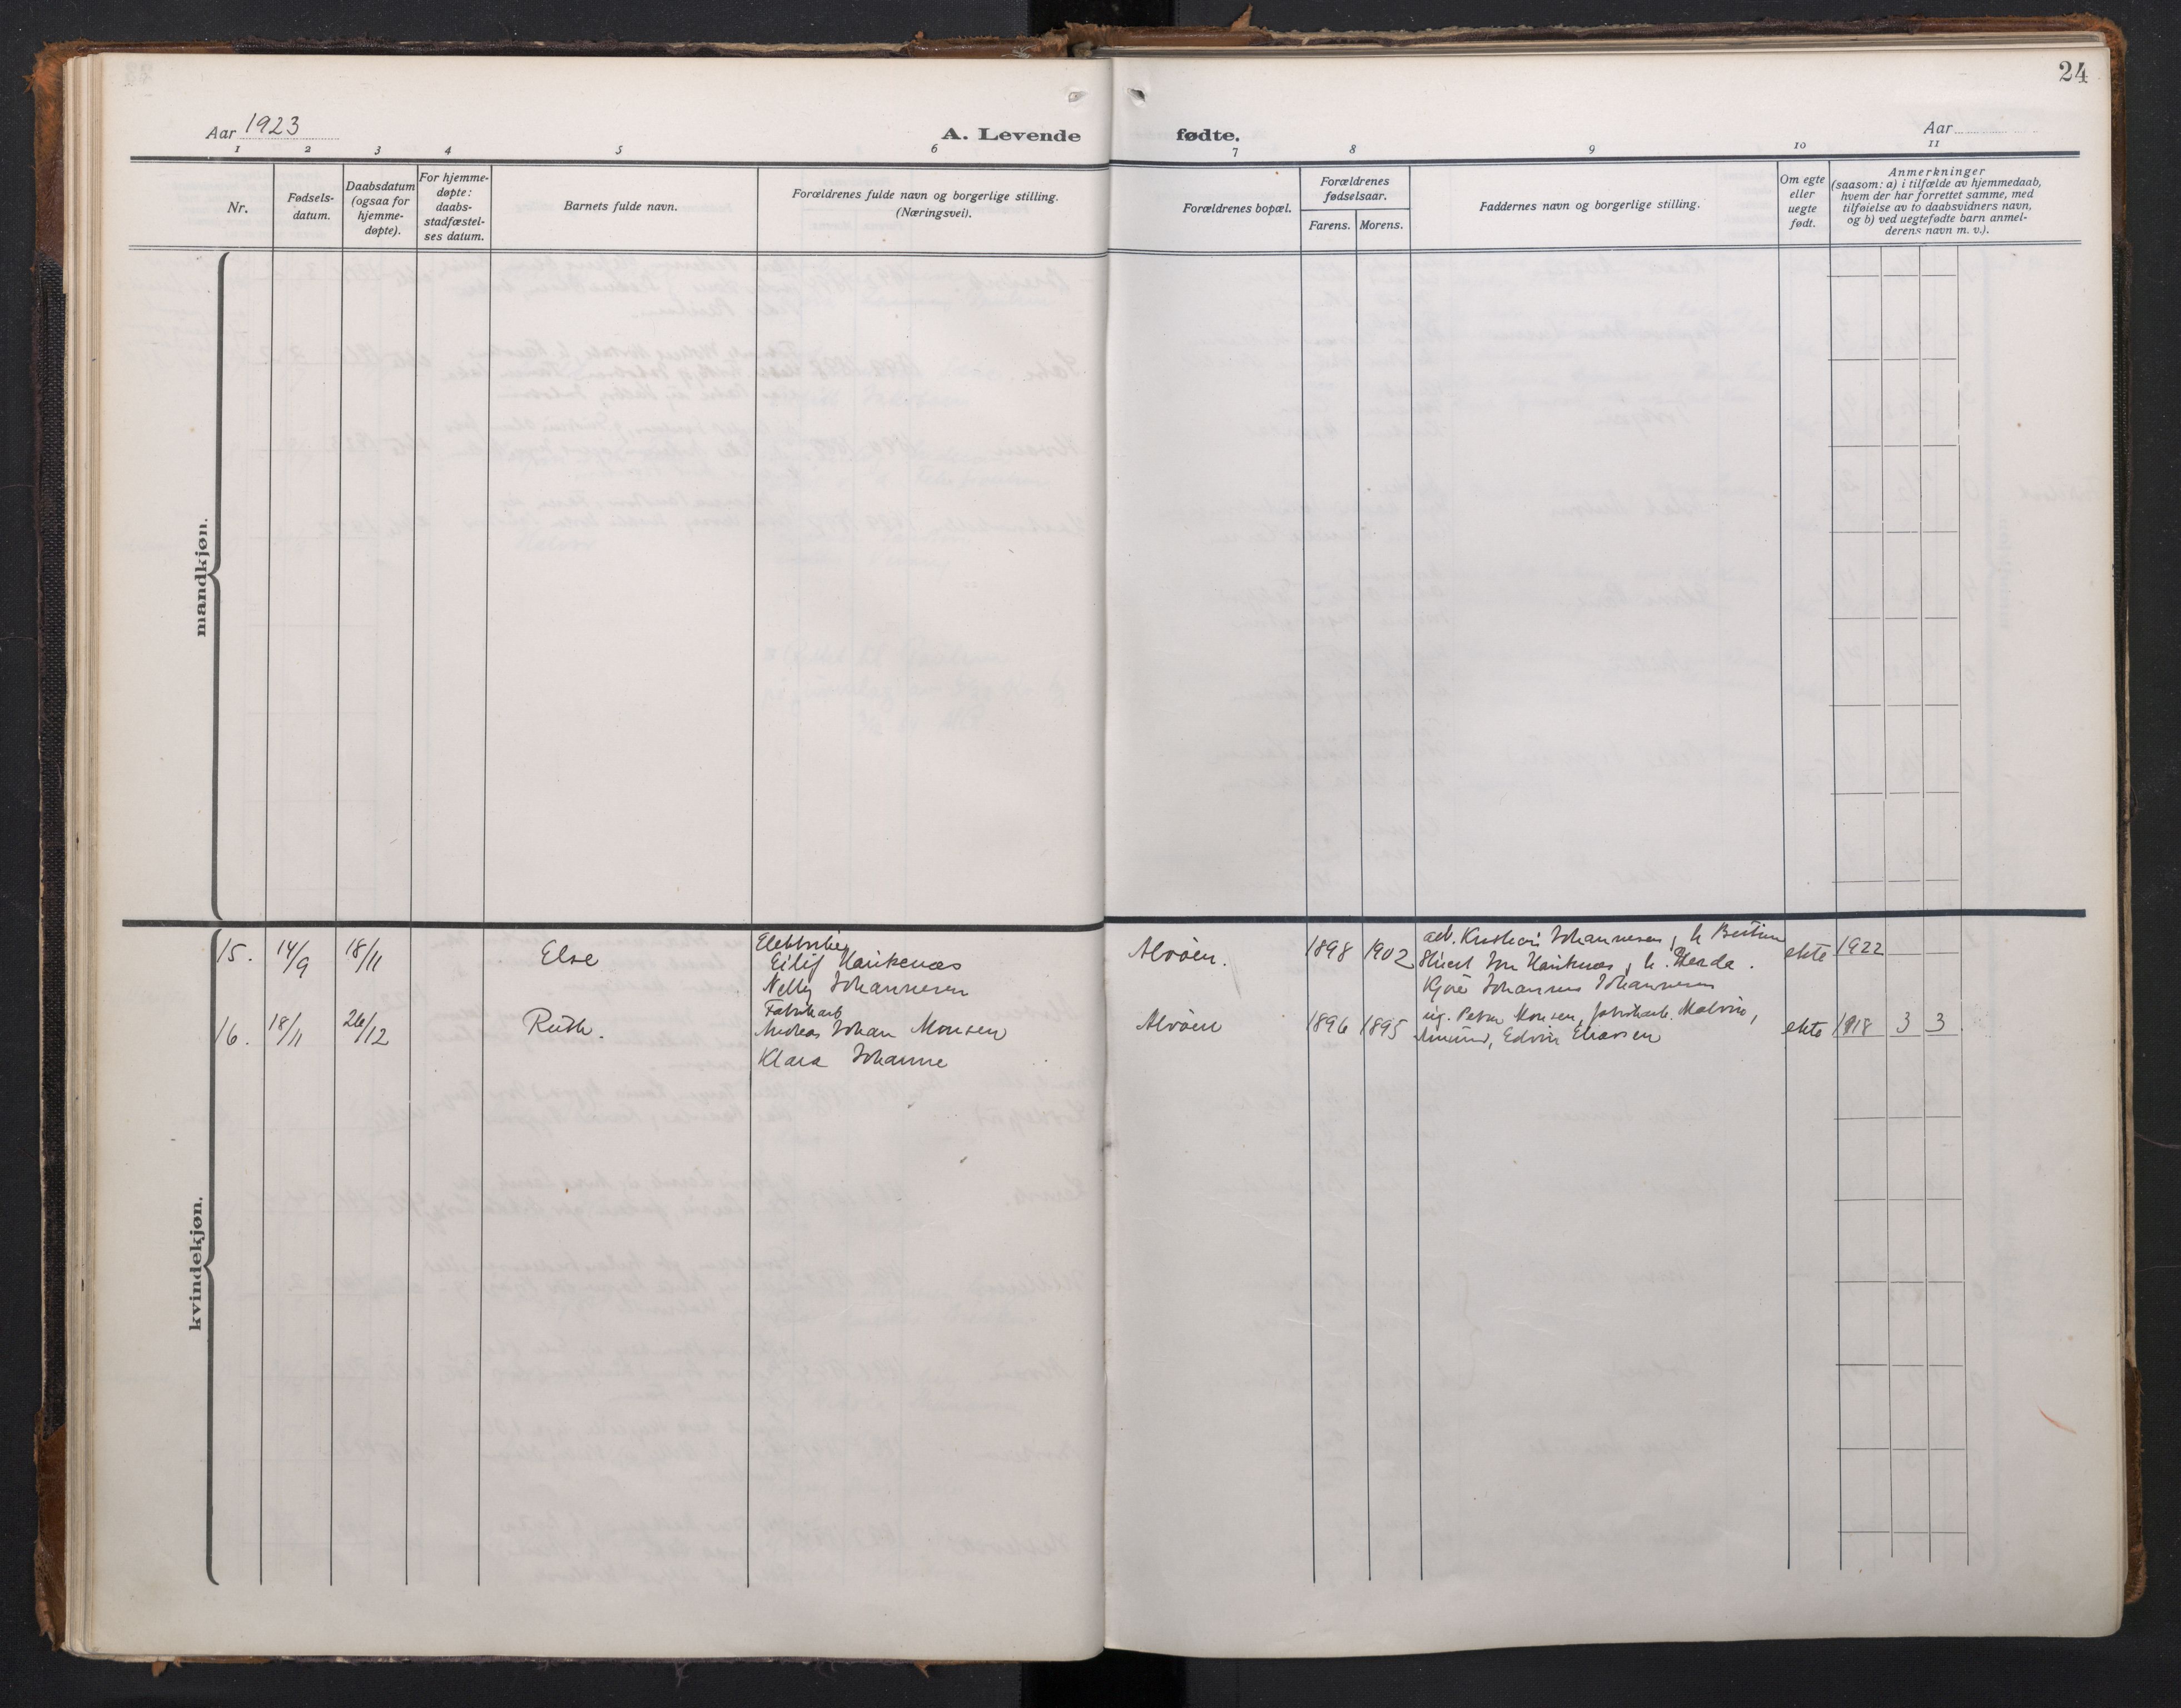 24
Aar 1923
A. Levende
fødte.
Aar
1 2 3 4 5 6
7 8 9 10 11
Nr.
Fødsels-
datum.
Daabsdatum
(ogsaa for
hjemme-
døpte).
For hjemme-
døpte:
daabs-
stadfæstel-
ses datum.
Barnets fulde navn.
Forældrenes fulde navn og borgerlige stilling.
(Næringsvei).
Forældrenes bopæl.
Forældrenes
fødselsaar.
Farens. Morens.
Faddernes navn og borgerlige stilling.
Om egte
eller
uegte
født.
Anmerkninger
(saasom: a) i tilfælde av hjemmedaab,
hvem der har forrettet samme, med
tilføielse av to daabsvidners navn,
og b) ved uegtefødte barn anmel-
derens navn m. v.).
mandkjøn.
kvindekjøn.
15. 14/9 18/11 Else
Eilif Haukenæs
Nelly Johannesen
Alvøen. 1898 1902
arb. Kristian Johannesen, h.
Haukenæs, h.
Johannes Johannesen
ekte 1922
16. 18/11 26/12 Ruth.
Fabrikarb
Andreas Johan Monsen
Klara Johanne
Alvøen 1896 1895
ug. Petra Monsen, fabrikarb. Malvin,
Edvin Eliassen
ekte 1918 3 3